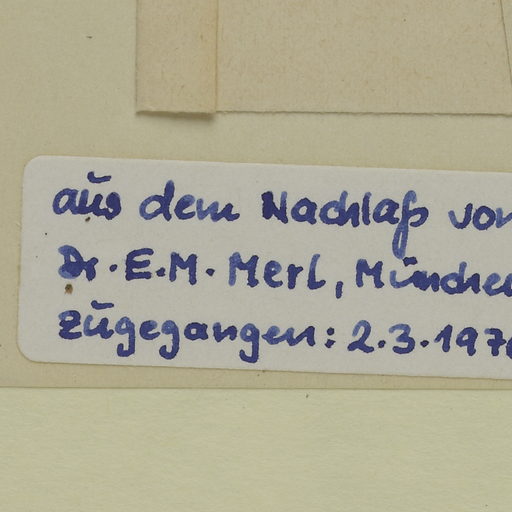 aus dem Nachlaß von
Dr. E.M. Merl, München
zugegangen: 2.3.197